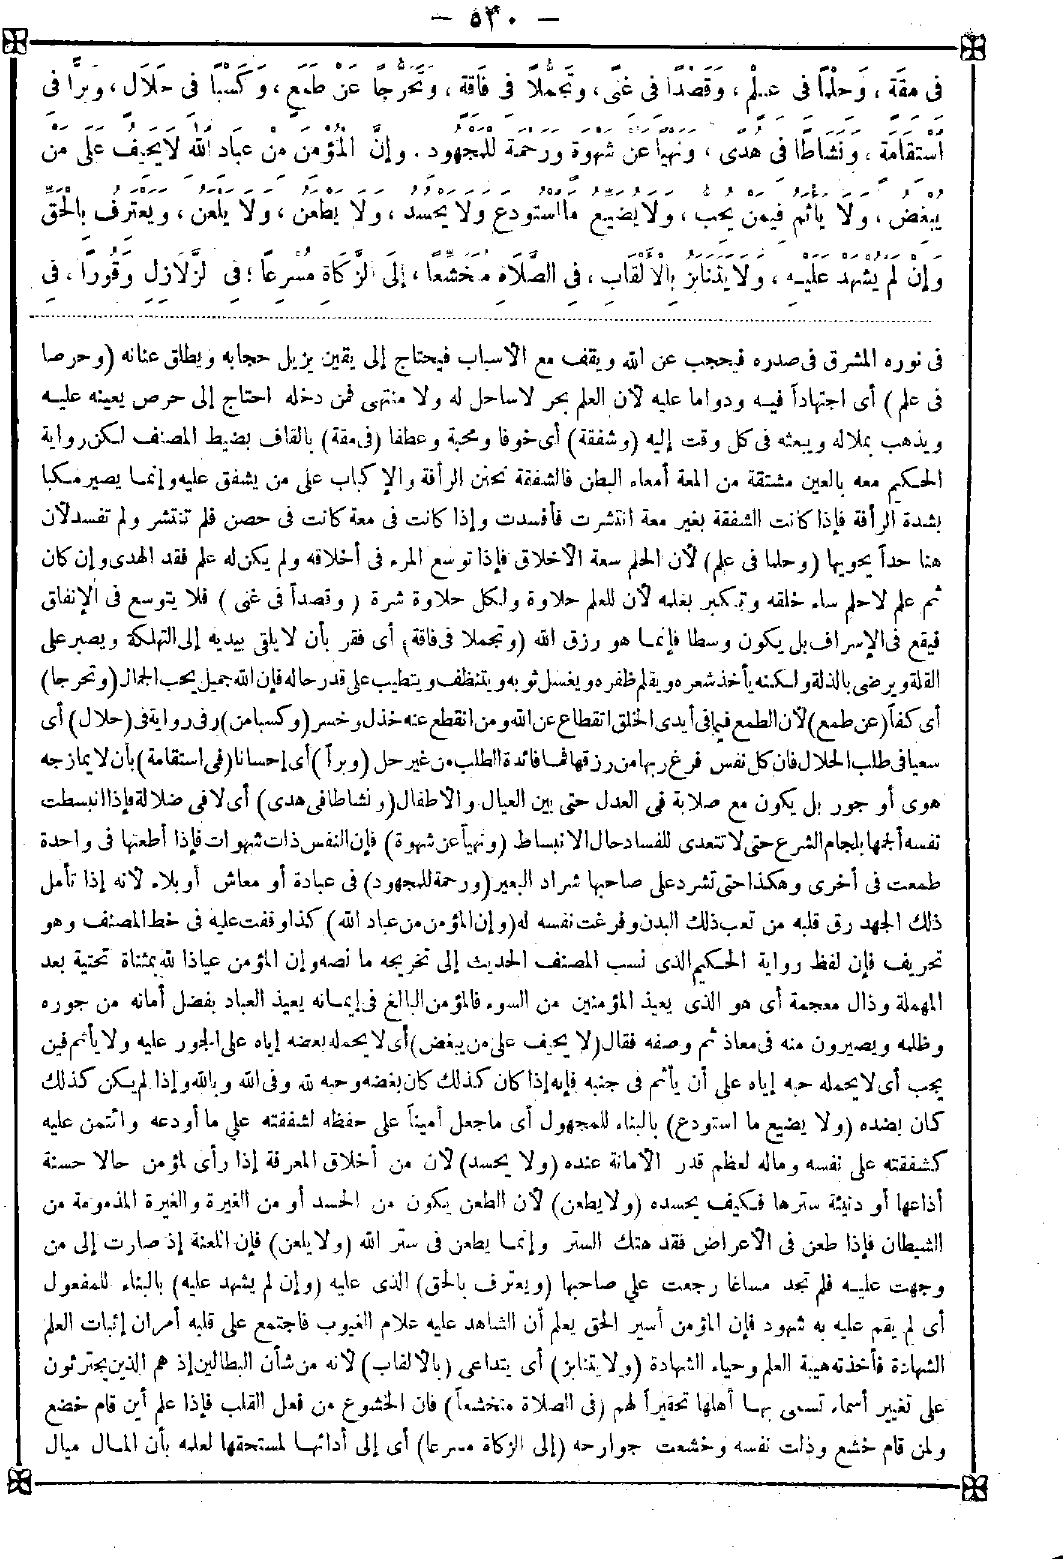 — ٥٣٠ —
فِى مِقَةٍ ، وَحِلْمًا فِى عِلْمٍ ، وَقَصْدًا فِى غِنًى ، وَتَجَمُّلًا فِى فَاقَةٍ ، وَتَحَرُّجًا عَنْ طَمَعٍ ، وَكَسْبًا فِى حَلَالٍ ، وَبِرًّا فِى
اسْتِقَامَةٍ ، وَنَشَاطًا فِى هُدًى ، وَنَهْيًا عَنْ شَهْوَةٍ وَرَحْمَةً لِلْمَجْهُودِ . وَإِنَّ الْمُؤْمِنَ مِنْ عِبَادِ اللهِ لَا يَحِيفُ عَلَى مَنْ
يُبْغِضُ ، وَلَا يَأْثَمُ فِيمَنْ يُحِبُّ ، وَلَا يُضَيِّعُ مَا اسْتُودِعَ وَلَا يَحْسُدُ ، وَلَا يَطْعَنُ ، وَلَا يَلْعَنُ ، وَيَعْتَرِفُ بِالْحَقِّ
وَإِنْ لَمْ يُشْهَدْ عَلَيْهِ ، وَلَا يَتَنَابَزُ بِالْأَلْقَابِ ، فِى الصَّلَاةِ مُتَخَشِّعًا ، إِلَى الزَّكَاةِ مُسْرِعًا ؛ فِى الزَّلَازِلِ وَقُورًا ، فِى
فى نوره المشرق فى صدره فيحجب عن الله ويقف مع الأسباب فيحتاج إلى يقين يزيل حجابه ويطلق عنانه (وحرصا
فى علم) أى اجتهاداً فيه ودواما عليه لأن العلم بحر لا ساحل له ولا منتهى فمن دخله احتاج إلى حرص يعينه عليه
ويذهب بملاله ويبعثه فى كل وقت إليه (وشفقة) أى خوفا ومحبة وعطفا (فى مقة) بالقاف بضبط المصنف لكن رواية
الحكيم معه بالعين مشتقة من المعة أمعاء البطن فالشفقة تحنن الرأفة والإكباب على من يشفق عليه وإنما يصير مكبا
بشدة الرأفة فإذا كانت الشفقة بغير معة انتشرت فأفسدت وإذا كانت فى معة كانت فى حصن فلم تنتشر ولم تفسد لأن
هنا حداً يحويها (وحلما فى علم) لأن الحلم سعة الأخلاق فإذا توسع المرء فى أخلاقه ولم يكن له علم فقد الهدى وإن كان
ثم علم لا حلم ساء خلقه وتكبر بعلمه لأن للعلم حلاوة ولكل حلاوة شرة (وقصداً فى غنى) فلا يتوسع فى الإنفاق
فيقع فى الإسراف بل يكون وسطا فإنما هو رزق الله (وتجملا فى فاقة) أى فقر بأن لا يلقى بيديه إلى التهلكة ويصبر على
القلة ويرضى بالذلة ولكنه يأخذ شعره ويقلم ظفره ويغسل ثوبه ويتنظف ويتطيب على قدر حاله فإن الله جميل يحب الجمال (وتحرجا)
أى كفاً (عن طمع) لأن الطمع فيما فى أيدى الخلق انقطاع عن الله ومن انقطع عنه خذل وخسر (وكسبا من) وفى رواية فى (حلال) أى
سعيا فى طلب الحلال فإن كل نفس فرغ ربها من رزقها فما فائدة الطلب من غير حل (وبراً) أى إحسانا (فى استقامة) بأن لا يمازجه
هوى أو جور بل يكون مع صلابة فى العدل حتى بين العيال والأطفال (ونشاطا فى هدى) أى لا فى ضلالة فإذا انبسطت
نفسه ألجمها بلجام الشرع حتى لا تتعدى للفساد حال الانبساط (ونهياً عن شهوة) فإن النفس ذات شهوات فإذا أطعتها فى واحدة
طمعت فى أخرى وهكذا حتى تشرد على صاحبها شراد البعير (ورحمة للمجهود) فى عبادة أو معاش أو بلاء لأنه إذا تأمل
ذلك الجهد رق قلبه من تعب ذلك البدن وفرغت نفسه له (وإن المؤمن من عباد الله) كذا وقفت عليه فى خط المصنف وهو
تحريف فإن لفظ رواية الحكيم الذى نسب المصنف الحديث إلى تخريجه ما نصه وإن المؤمن عياذا لله بمثناة تحتية بعد
المهملة وذال معجمة أى هو الذى يعيذ المؤمنين من السوء فالمؤمن البالغ فى إيمانه يعيذ العباد بفضل أمانه من جوره
وظلمه ويصيرون منه فى معاذ ثم وصفه فقال (لا يحيف على من يبغض) أى لا يحمله بعضه إياه على الجور عليه ولا يأثم فين
يحب أى لا يحمله حبه إياه على أن يأثم فى جنبه فإنه إذا كان كذلك كان بغضه وحبه لله وفى الله وبالله وإذا لم يكن كذلك
كان بضده (ولا يضيع ما استودع) بالبناء للمجهول أى ما جعل أميناً على حفظه لشفقته على ما أودعه وائتمن عليه
كشفقته على نفسه وماله لعظم قدر الأمانة عنده (ولا يحسد) لأن من أخلاق المعرفة إذا رأى لمؤمن حالا حسنة
أذاعها أو دنيئة سترها فكيف يحسده (ولا يطعن) لأن الطعن يكون من الحسد أو من الغيرة والغيرة المذمومة من
الشيطان فإذا طعن فى الأعراض فقد هتك الستر وإنما يطعن فى ستر الله (ولا يلعن) فإن اللعنة إذ صارت إلى من
وجهت عليه فلم تجد مساغا رجعت على صاحبها (ويعترف بالحق) الذى عليه (وإن لم يشهد عليه) بالبناء للمفعول
أى لم يقم عليه به شهود فإن المؤمن أسير الحق يعلم أن الشاهد عليه علام الغيوب فاجتمع على قلبه أمران إثبات العلم
الشهادة فأخذته هيبة العلم وحياء الشهادة (ولا يتنابز) أى يتداعى (بالألقاب) لأنه من شأن البطالين إذ هم الذين يجترئون
على تغيير أسماء تسمى بها أهلها تحقيراً لهم (فى الصلاة متخشعاً) فان الخشوع من فعل القلب فإذا علم أين قام خضع
ولمن قام خشع وذلت نفسه وخشعت جوارحه (إلى الزكاة مسرعا) أى إلى أدائها لمستحقها لعلمه بأن المال ميال